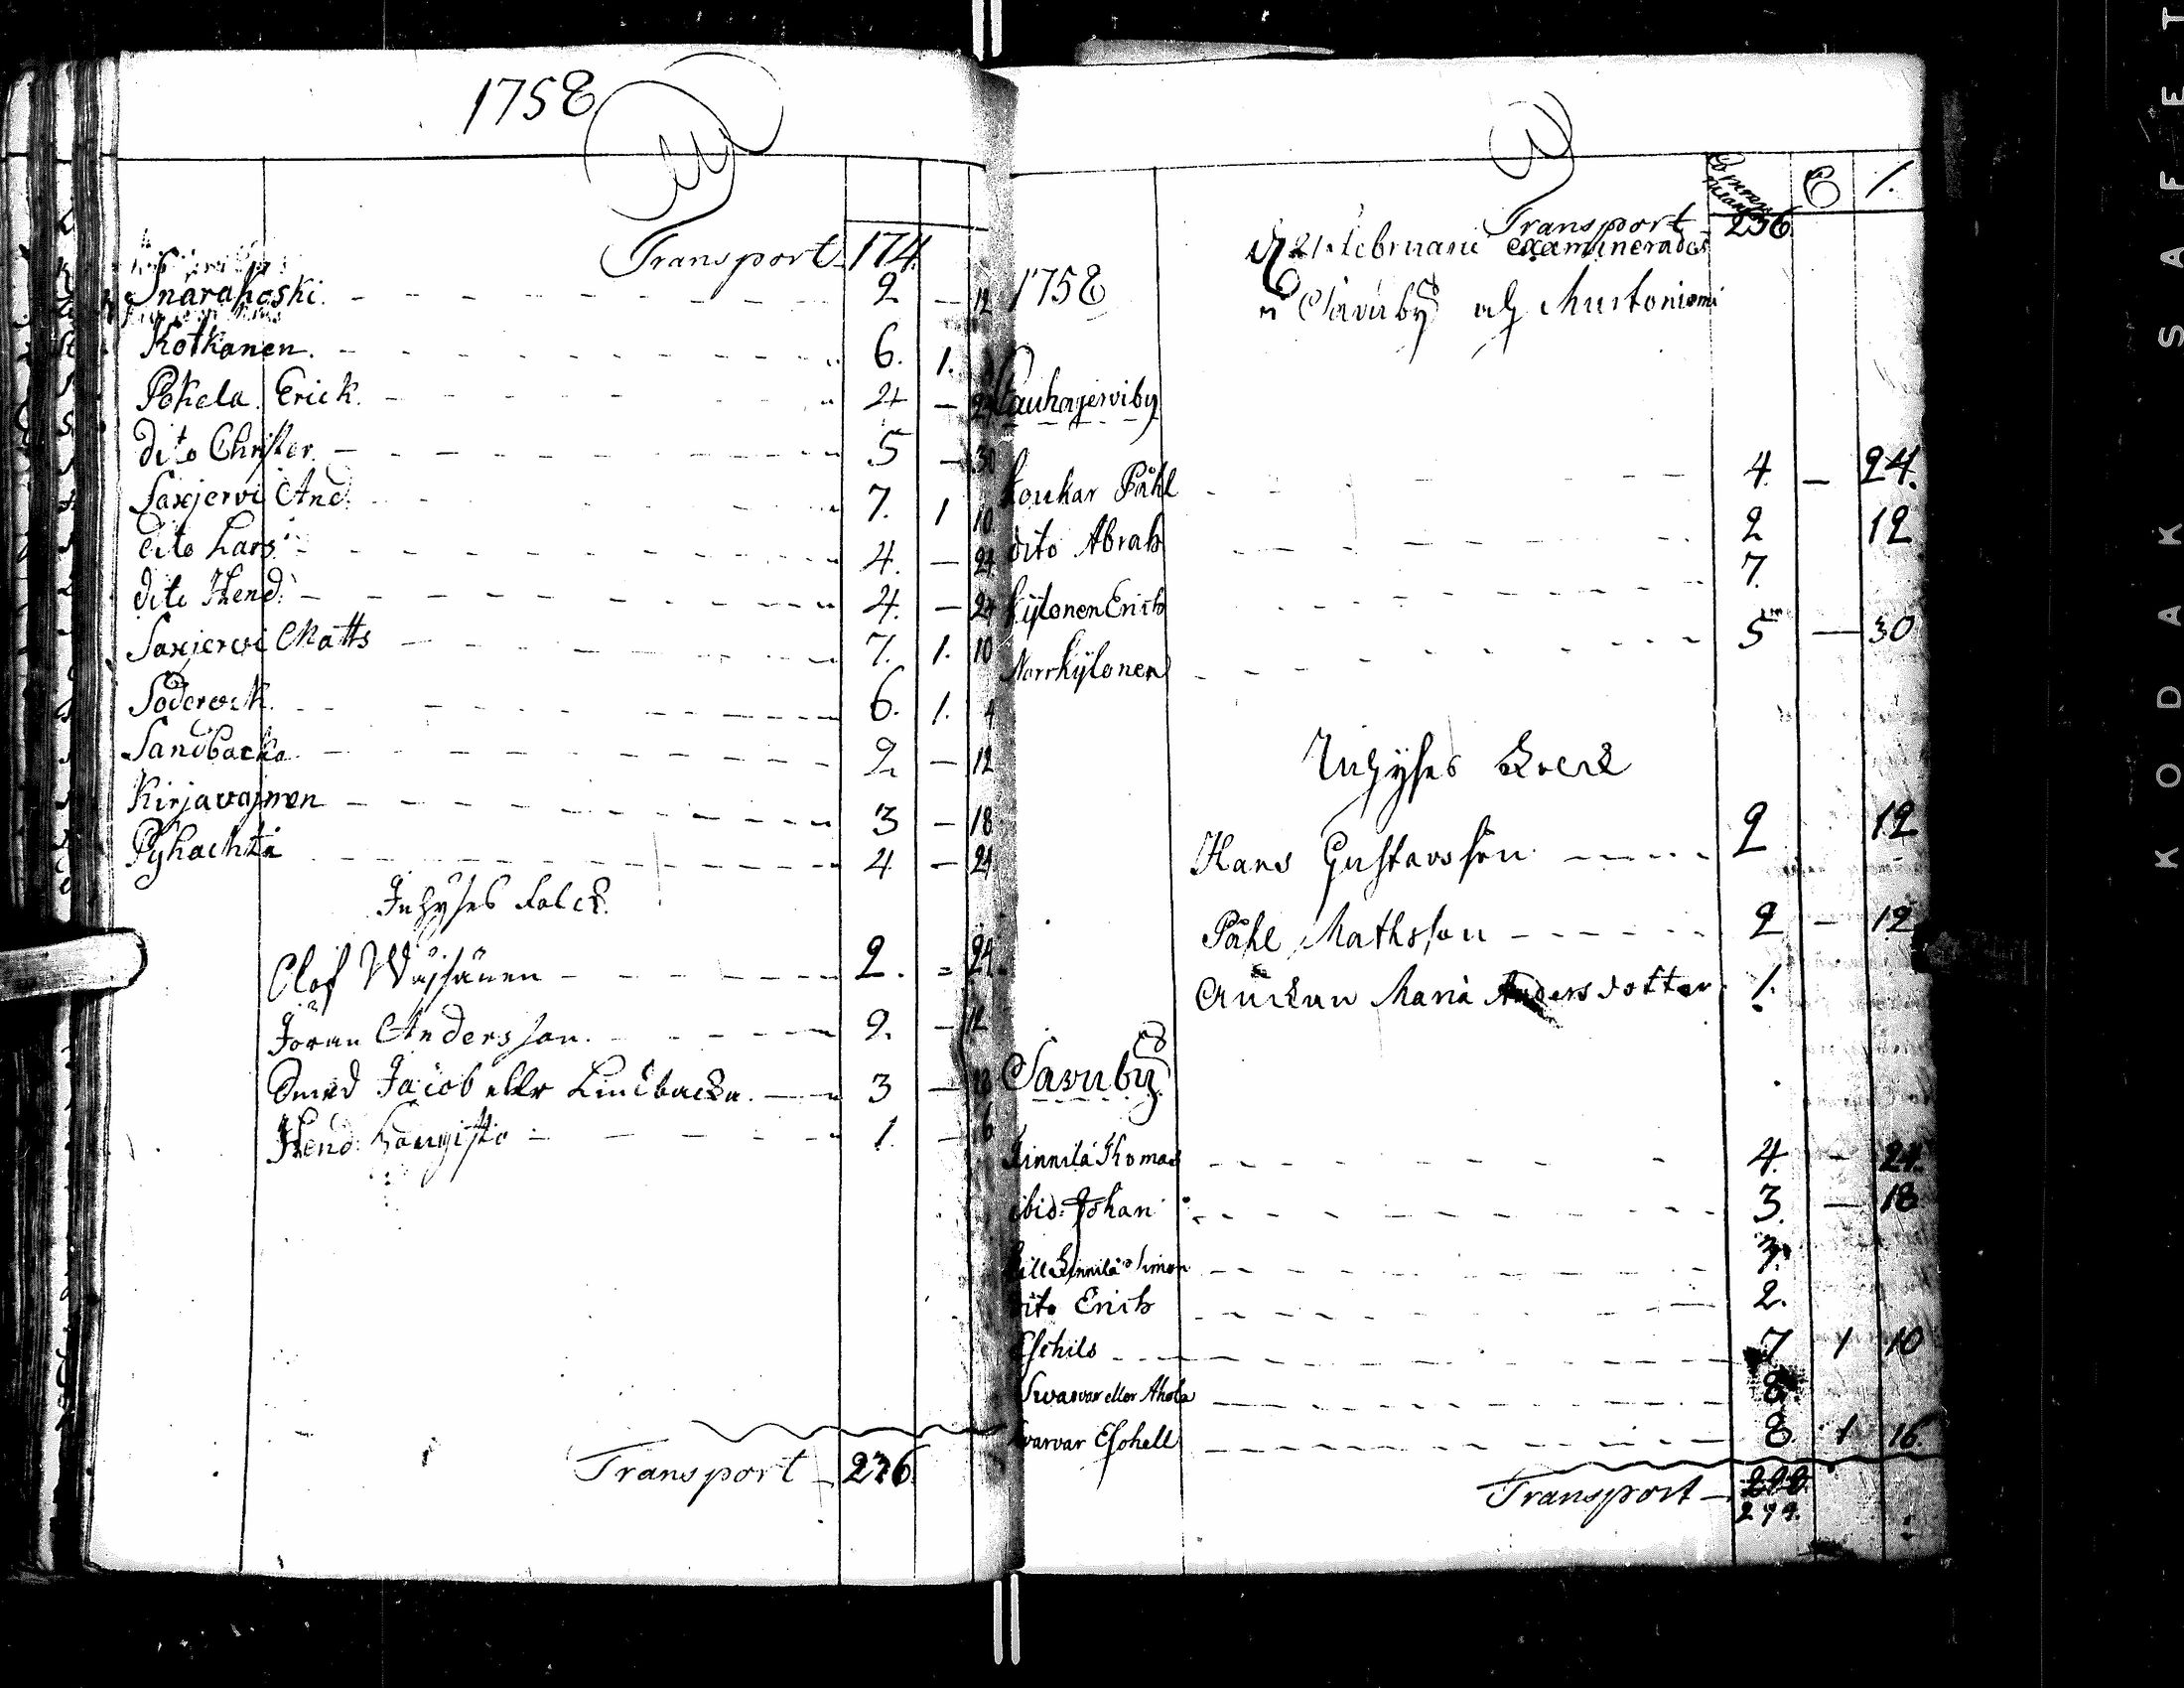 1758
Transport 174.
Snarahoski. 2 — 12
Kotkanen. 6. 1.
Pökela Erick. 4 — 24
dito Christer. 5 — 30
Saxjervi And: 7. 1 10
dito Lars 4. — 24
dito Hend: 4. — 24
Saxjervi Matts 7. 1. 10
Söderwik. 6. 1. 4
Sandbacka 2 — 12
Kirjavajnen 3 — 18
Pyhachtä 4 — 24
Inhyses Folck.
Olof Wäisänen 2. = 24
Jöran Andersson. 2. — 12
Smed Jacob eller Lindbacka. 3 — 18
Hend: 1. — 6
Transport 236.
Transport 236
d 21. Februarii examinerades
1758 Savuby och Mustoniemi
Kauhajerviby
Koukar Påhl 4. — 24.
dito Abrah 2 12
Kylönen Erich 7.
Norrkylönen 5 — 30
Inhyses Folck
Hans Gustavsson 2 12
Påhl Mathsson 2 — 12
Änckan Maria Andersdotter. 1.
Savuby
Kinnilä Thomas 4. — 24.
ibid: Johan 3. — 18
Lill Kinnilä Simon 3.
dito Erich 2.
Eschils 7 1 10
Swarvar eller Ahola 8
Swarvar Eschell 8 1 16.
Transport
294.